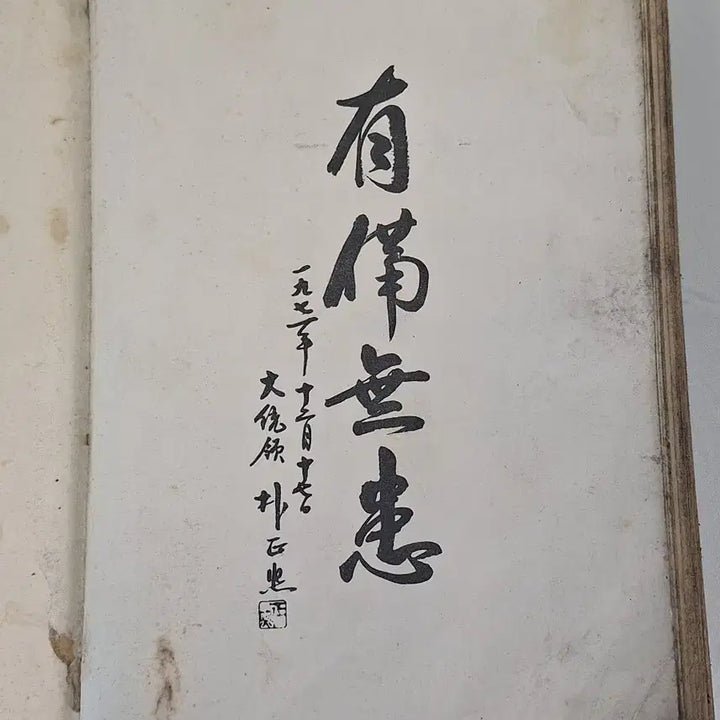 有備無患
一九七一年 十二月 十七日
大統領 朴正熙